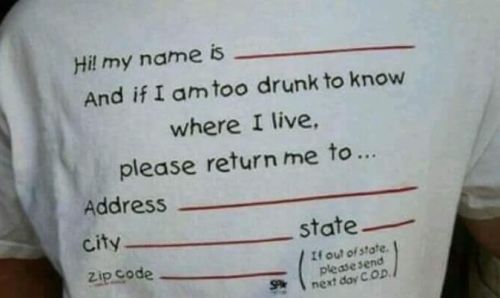 Hi! my name is
And if I am too drunk to know
where I live,
please return me to ...
Address
city
state
zip code
(If out of state.
please send
next day C.O.D.)